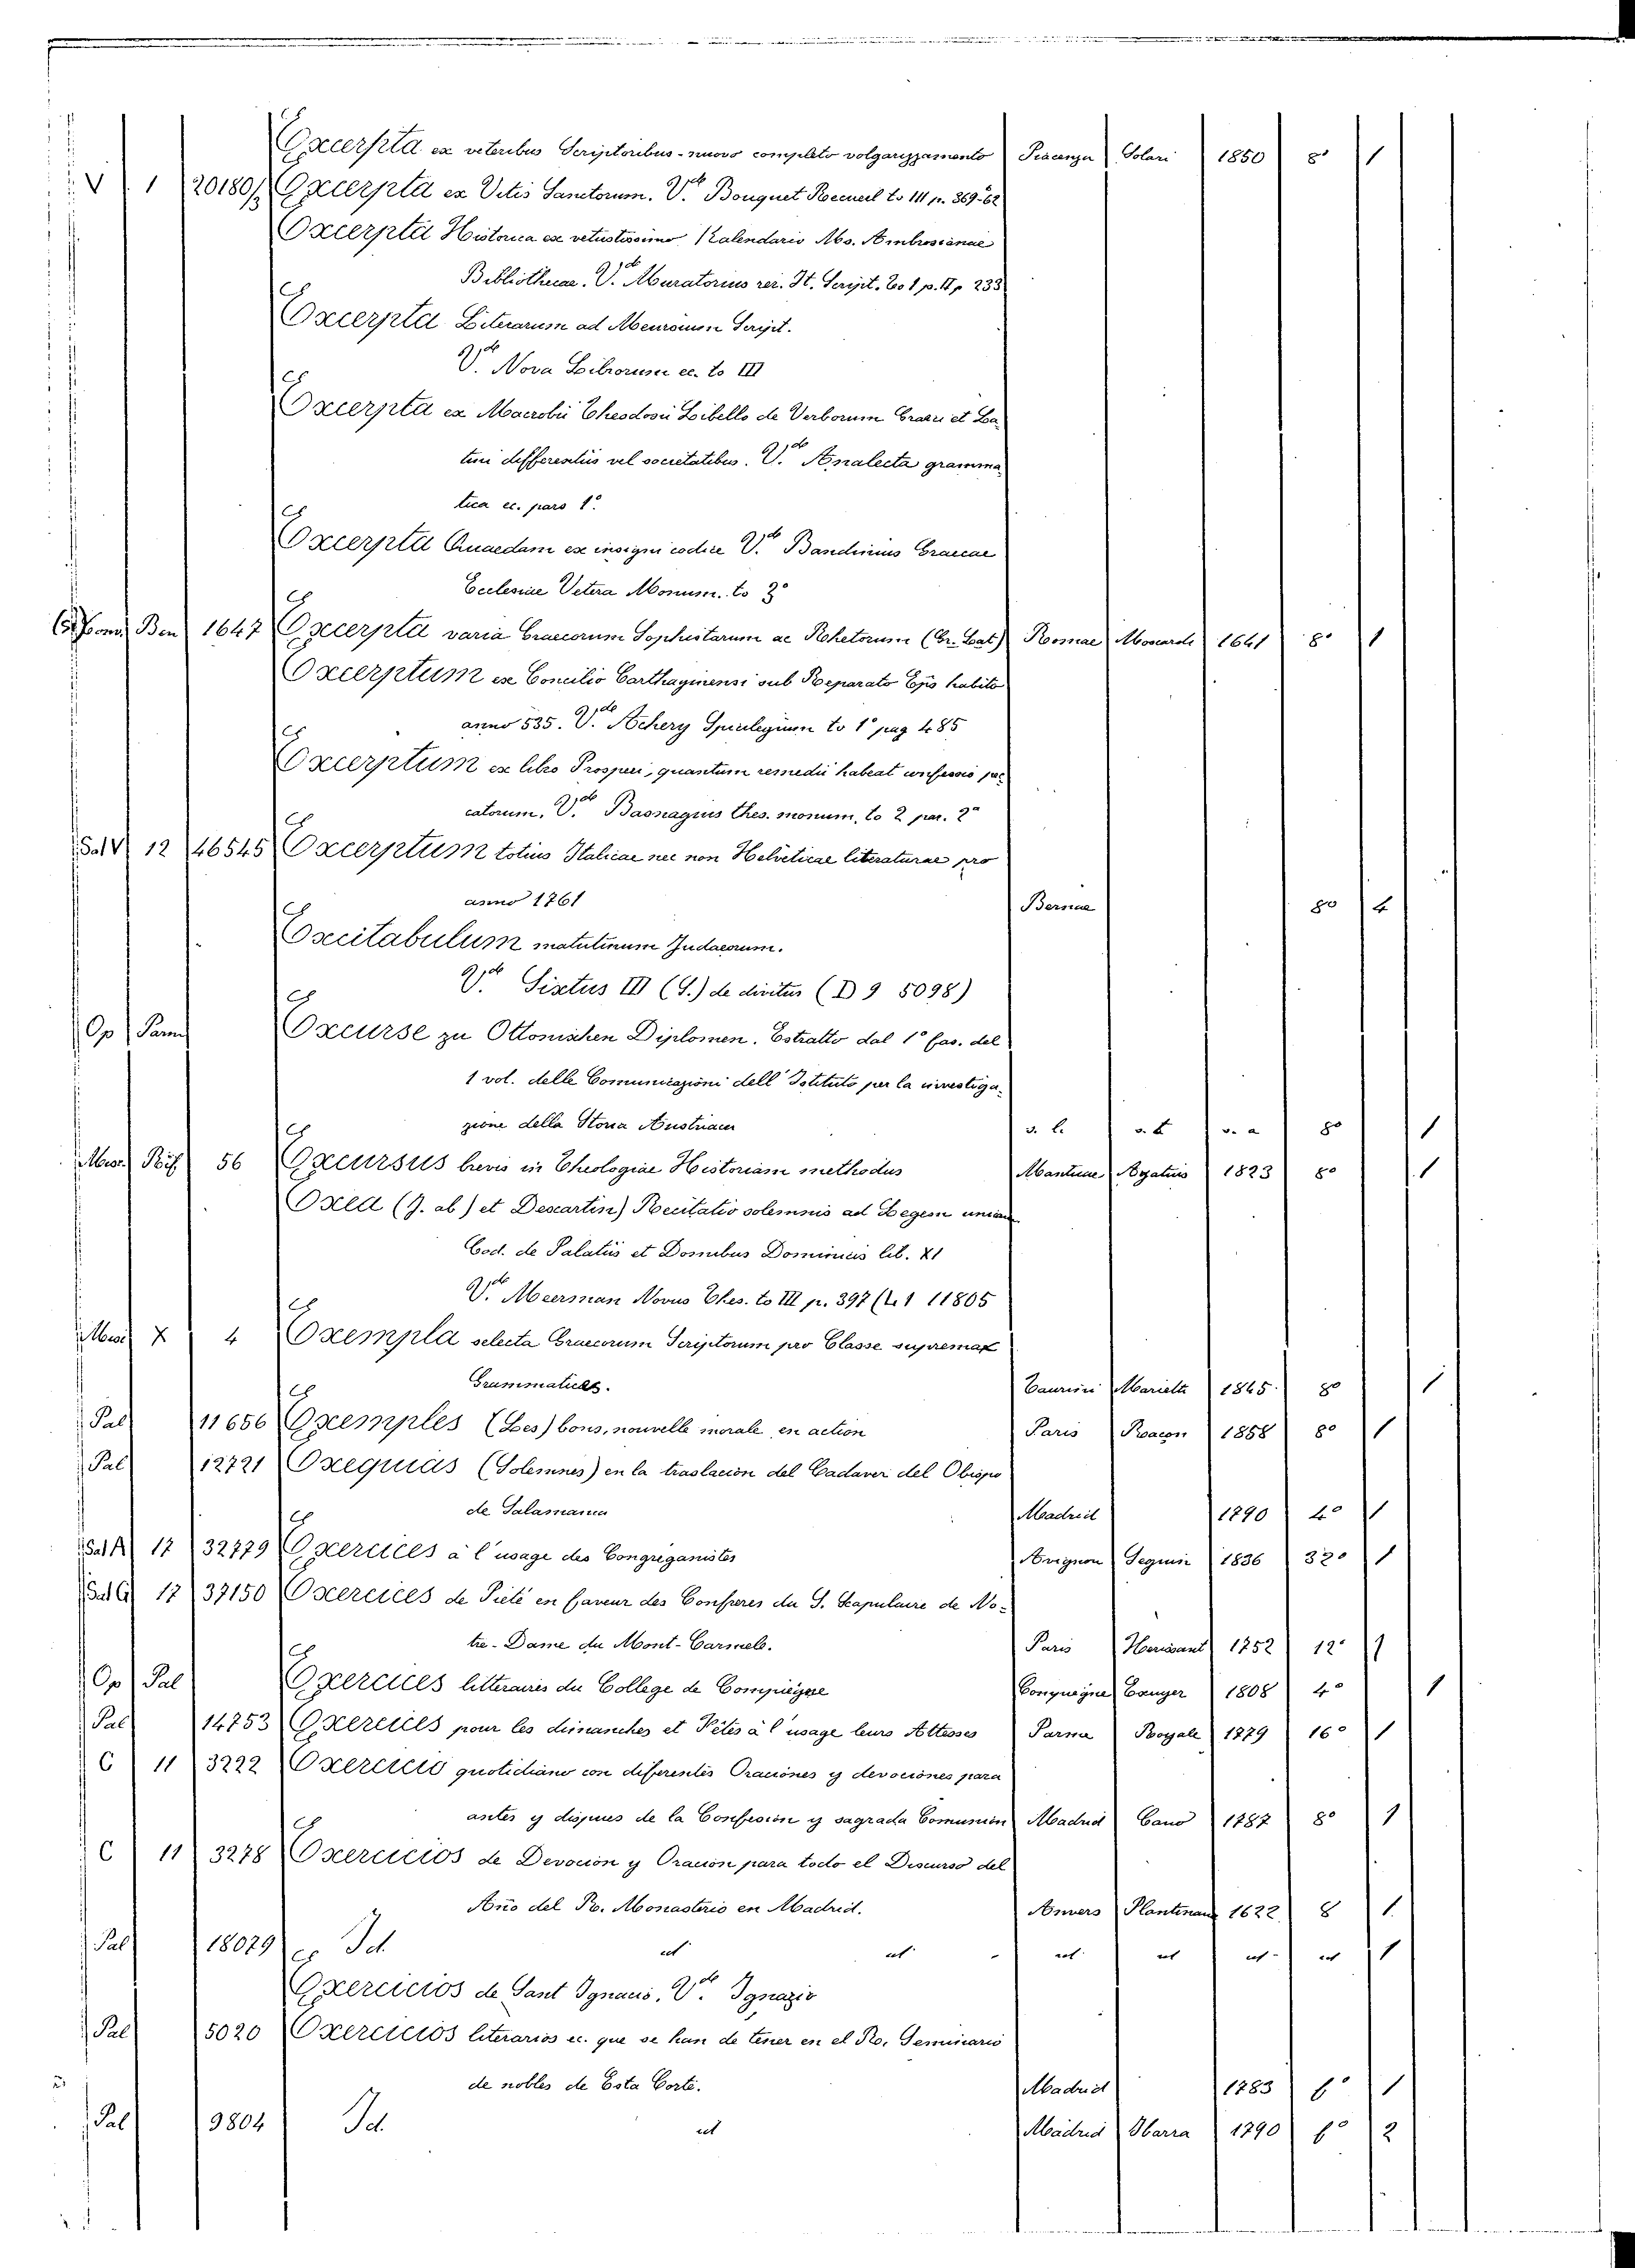 Excerpta ex veteribus Scriptoribus - nuovo completo volgarizzamento Piacenza Solari 1850 8° 1
V 1 20180/2 Excerpta ex Vitis Sanctorum. V.de Bouquet Recueil to III p. 369-62
Excerpta Historica ex vetustissimo Kalendario Ms. Ambrosianae
Bibliothecae. V.de Muratorius rer. It. Script. to 1 p. II p 233
Excerpta Literarum ad Meursium Script.
V.de Nova Librorum ec. to III
Excerpta ex Macrobii Theodosii Libello de Verborum Graeci et La
tini differentiis vel societatibus. V.de Analecta gramma
tica ec. pars 1°
Excerpta Quaedam ex insigni codice V.de Bandinius Graecae
Ecclesiae Vetera Monum. to 3°
Ben 1647 Excerpta varia Graecorum Sophistarum ac Rhetorum (Gr. Lat) Romae Moscardi 1641 8° 1
Excerptum ex Concilio Carthaginensi sub Reparato Ejis habito
anno 535. V.de Achery Spicilegium to 1° pag 485
Excerptum ex libro Prosperi, quantum remedii habeat confessio pec
catorum, V.de Basnagius thes. monum. to 2 par. 2a
Sal V 12 46545 Excerptum totius Italicae nec non Helveticae literaturae pro
anno 1761 Bernae 8° 4
Excitabulum matutinum Judaeorum.
V.de Sixtus III (S.) de divitus (D 9 5098)
Op Parm Excurse zu Ottonischen Diplomen. Estratto dal 1° fas. del
1 vol. delle Comunicazioni dell' Istituto per la investiga-
zione della Storia Austriaca s. l. s. t. s. a 8° 1
Misc. Rif. 56 Excursus brevis in Theologiae Historiam methodus Mantuae Agatius 1823 8° 1
Exea (J. ab) et Descartin) Recitatio solemnis ad Legem
Cod. de Palatiis et Domibus Dominicis lib. XI
V.de Meerman Novus Thes. to III p. 397 (L 1 11805
Misc X 4 Exempla selecta Graecorum Scriptorum pro Classe supremae
Grammatices. Taurini Marietti 1845 8° 1
Pal 11656 Exemples (Les) bons, nouvelle morale en action Paris Pracon 1858 8° 1
Pal 12721 Exequias (Solemnes) en la traslacion del Cadaver del Obispo
de Salamanca Madrid 1790 4° 1
Sal A 17 32779 Exercices à l'usage des Congreganistes Avignon Seguin 1836 32° 1
Sal G 17 37150 Exercices de Pieté en faveur des Confreres du S. Scapulaire de No-
tre-Dame du Mont-Carmel. Paris Herissant 1752 12° 1
Op Pal Exercices litteraires du College de Compiegne Compiegne 1808 4° 1
Pal 14753 Exercices pour les dimanches et Fêtes à l'usage leurs Altesses Parma Royale 1779 16° 1
C 11 3222 Exercicio quotidiano con differentes Oraciones y devociones para
antes y dispues de la Confesion y sagrada Comunion Madrid Cano 1787 8° 1
C 11 3278 Exercicios de Devocion y Oracion para todo el Discurso del
Año del R. Monasterio en Madrid. Anvers Plantinana 1622 8 1
Pal 18079 Id. ut ut ut ut ut ut 1
Exercicios de Sant Ignacio. V.de Ignazio
Pal 5020 Exercicios literarios ec. que se han de tener en el R. Seminario
de nobles de Esta Corte. Madrid 1783 6° 1
Pal 9804 Id. ut Madrid Ibarra 1790 6° 2